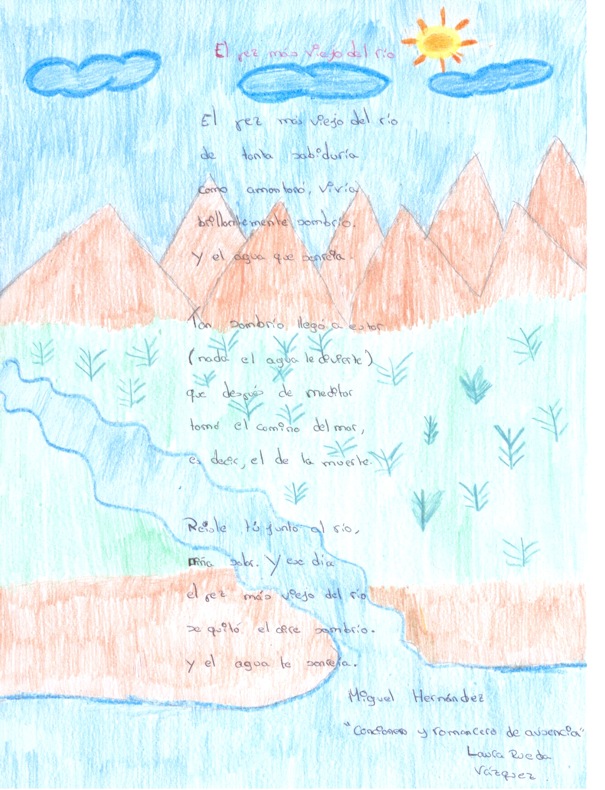 El pez más viejo del río
El pez más viejo del río
de tanta sabiduría
como amontonó, vivía
brillantemente sombrío.
Y el agua que sonreía.
Tan sombrío llegó a estar
(nada el agua le divierte)
que después de meditar
tomó el camino del mar,
es decir, el de la muerte.
Reíste tú junto al río,
niño solar. Y ese día
el pez más viejo del río
se quitó el aire sombrío.
Y el agua te sonreía.
Miguel Hernández
"Cancionero y romancero de ausencia"
Laura Rueda
Vázquez